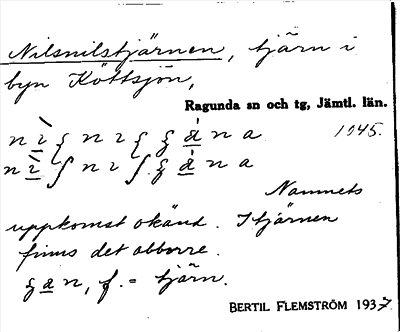 Nilsnilstjärnen, tjärn i
byn Köttsjön,
Ragunda sn och tg, Jämtl. län.
1945.
Namnets
uppkomst okänd. I tjärnen
finns det abborre.
f. = tjärn.
BERTIL FLEMSTRÖM 1937